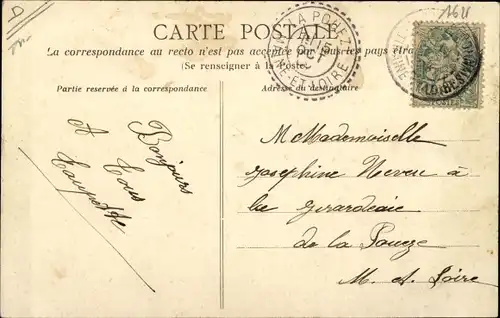 D
1621
CARTE POSTALE
La correspondance au recto n'est pas acceptée par tous les pays étra
(Se renseigner à la Poste)
LA POUEZE
NE-ET-LOIRE
Partie reservée à la correspondance
Adresse du destinataire
Bonjours
A Tous
M Mademoiselle
Josephine à
la Girardaie
de la Poueze
M. et. Loire